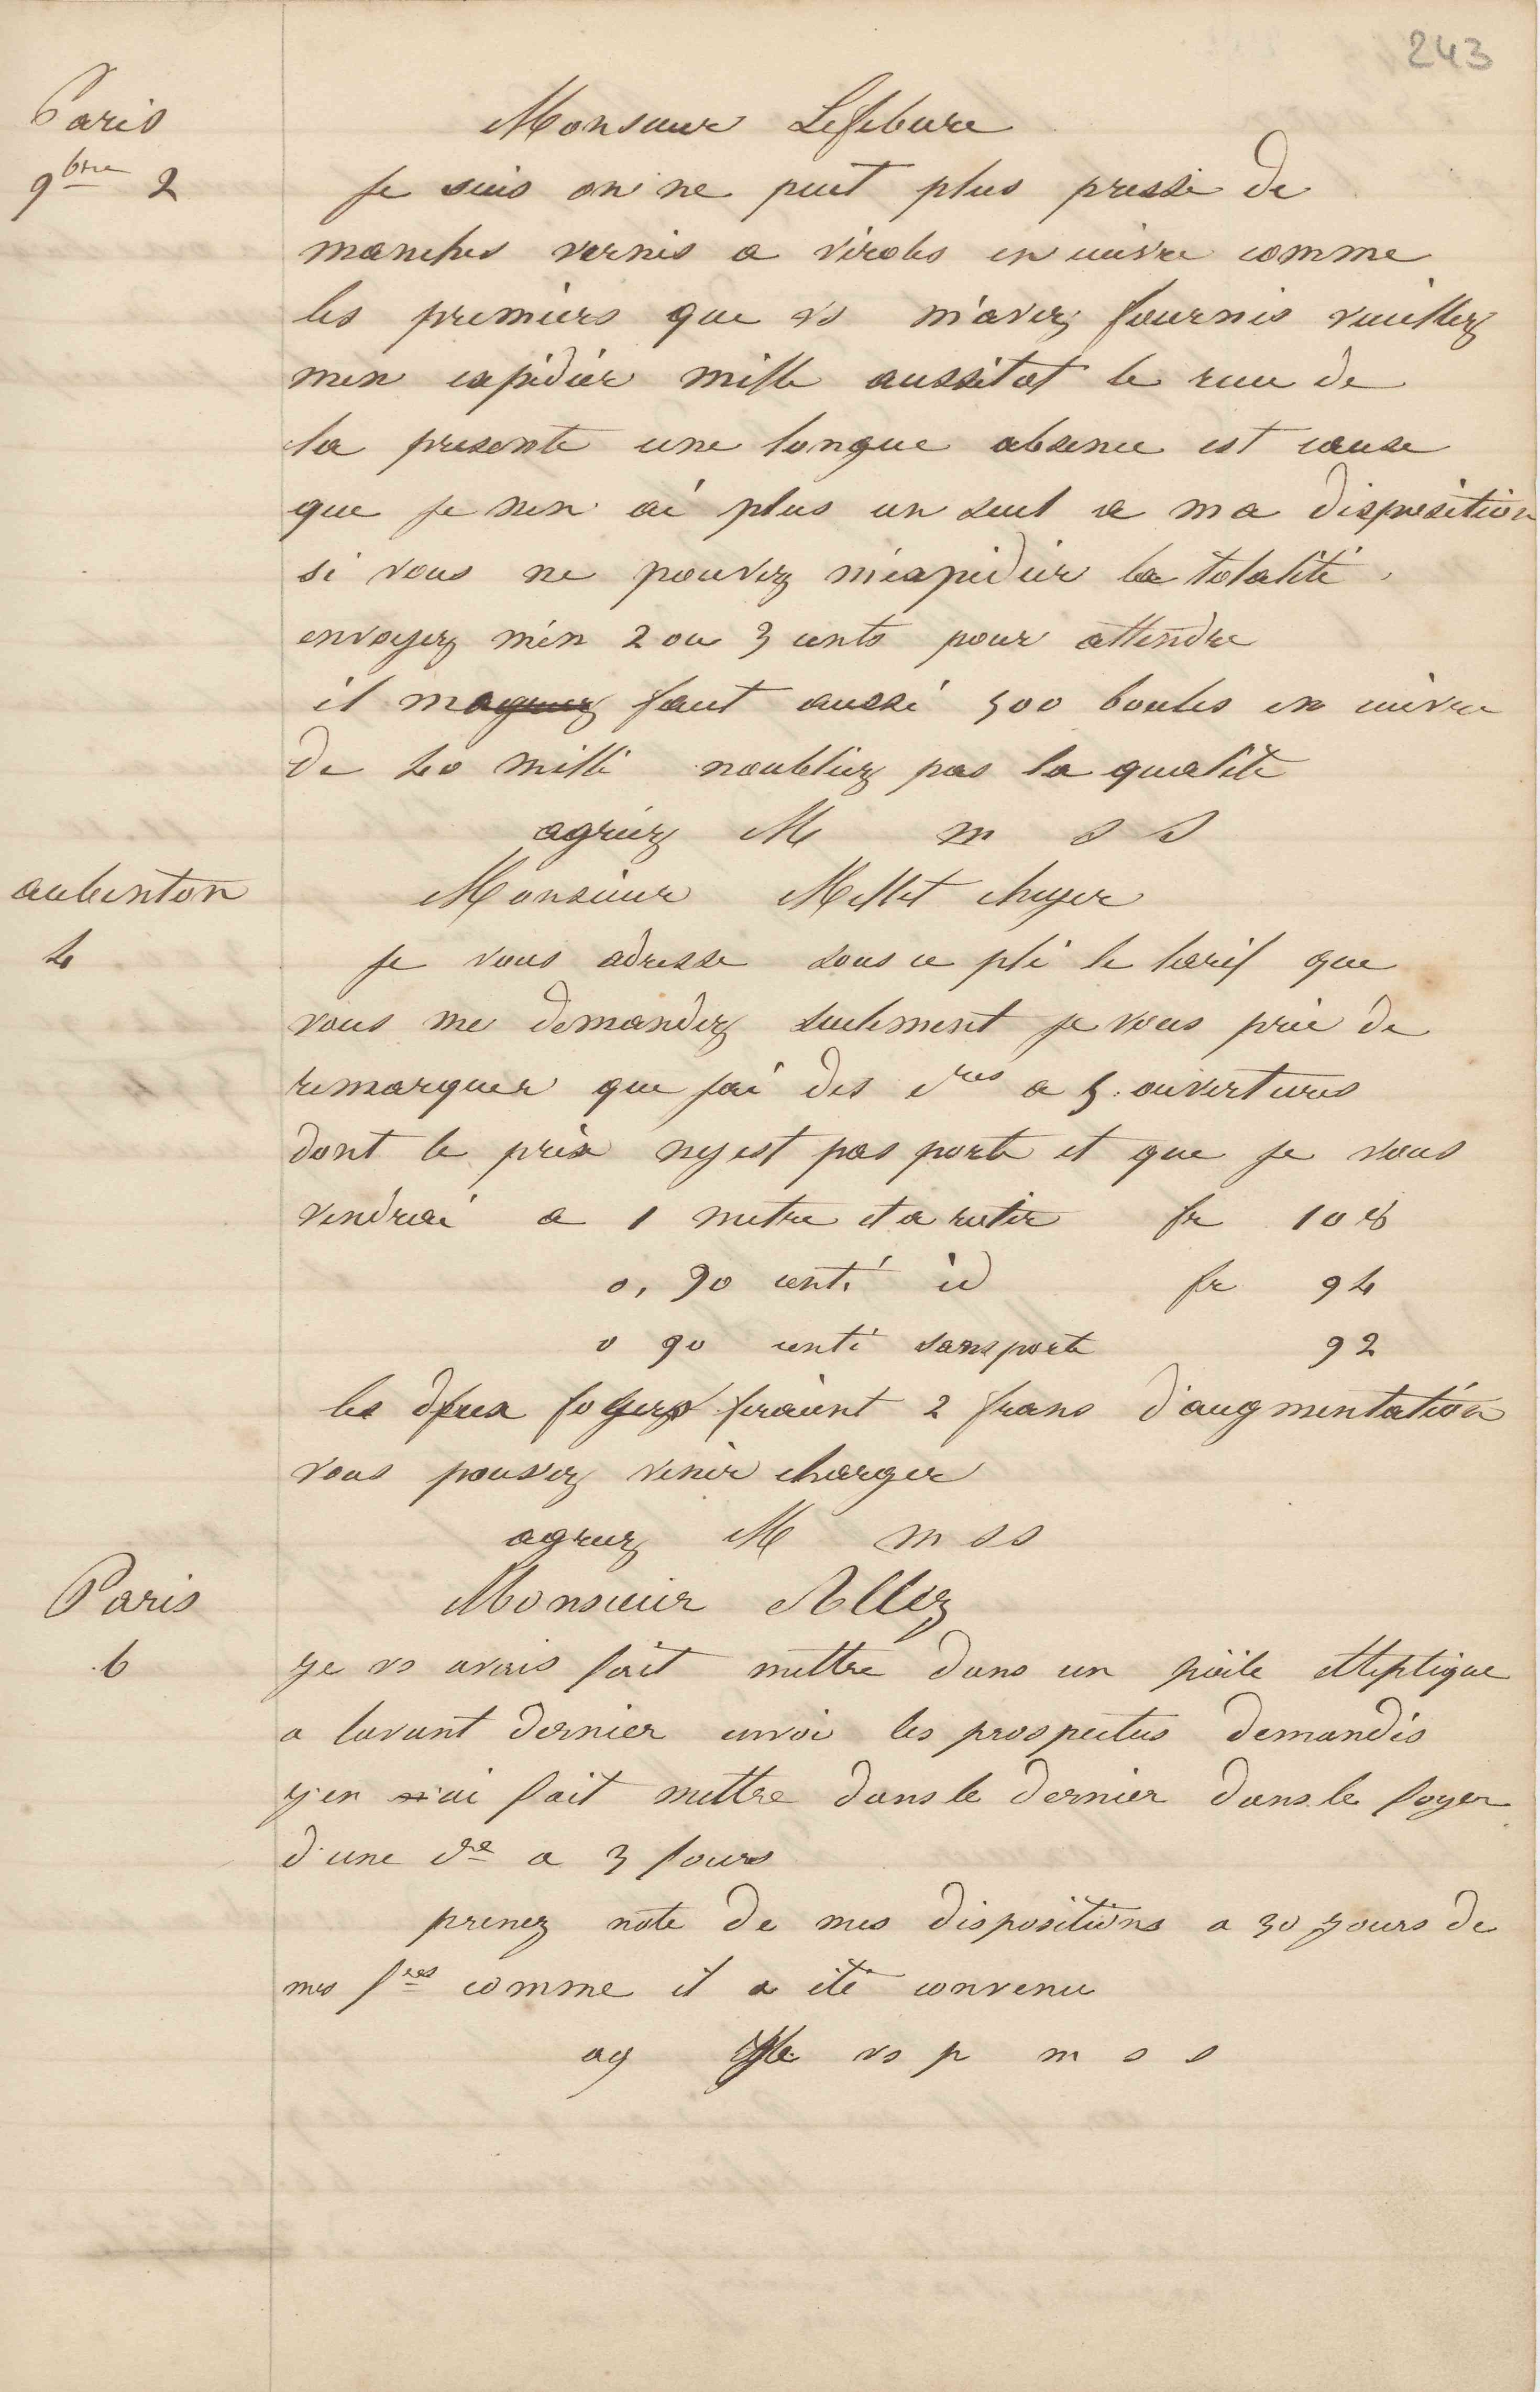 243
Paris
9bre 2
Monsieur Lefebure
je suis on ne peut plus pressé de
manches vernis a viroles en cuivre comme
les premiers que vs m'avez fournis veuillez
men expédier mille aussitot le recu de
la presente une longue absence est cause
que je nen ai plus un seul a ma disposition
si vous ne pouvez m'expedier la totalité
envoyez m'en 2 ou 3 cents pour attendre
il m faut aussi 500 boules en cuivre
de 40 milli noubliez pas la qualité
agréez M m s s
aubenton
4
Monsieur Millet
je vous adresse sous ce pli le tarif que
vous me demandez seulement je vous prie de
remarquer que jai des cres a 5 ouvertures
dont le prix ny est pas porté et que je vous
vendrai a 1 metre et a rotir fr 108
0,90 centi id fr 94
0 90 centi sans porte 92
les deux foyers feraient 2 frans d'augmentation
vous pouvez venir charger
agreez M m s s
Paris
6
Monsieur Allez
je vs avais fait mettre dans un poêle elleptique
a lavant dernier envoi les prospectus demandés
j'en ai fait mettre dans le dernier dans le foyer
d'une cre a 3 fours
prenez note de mes dispositions a 30 jours de
mes fres comme il a été convenu
ag vs p m s s